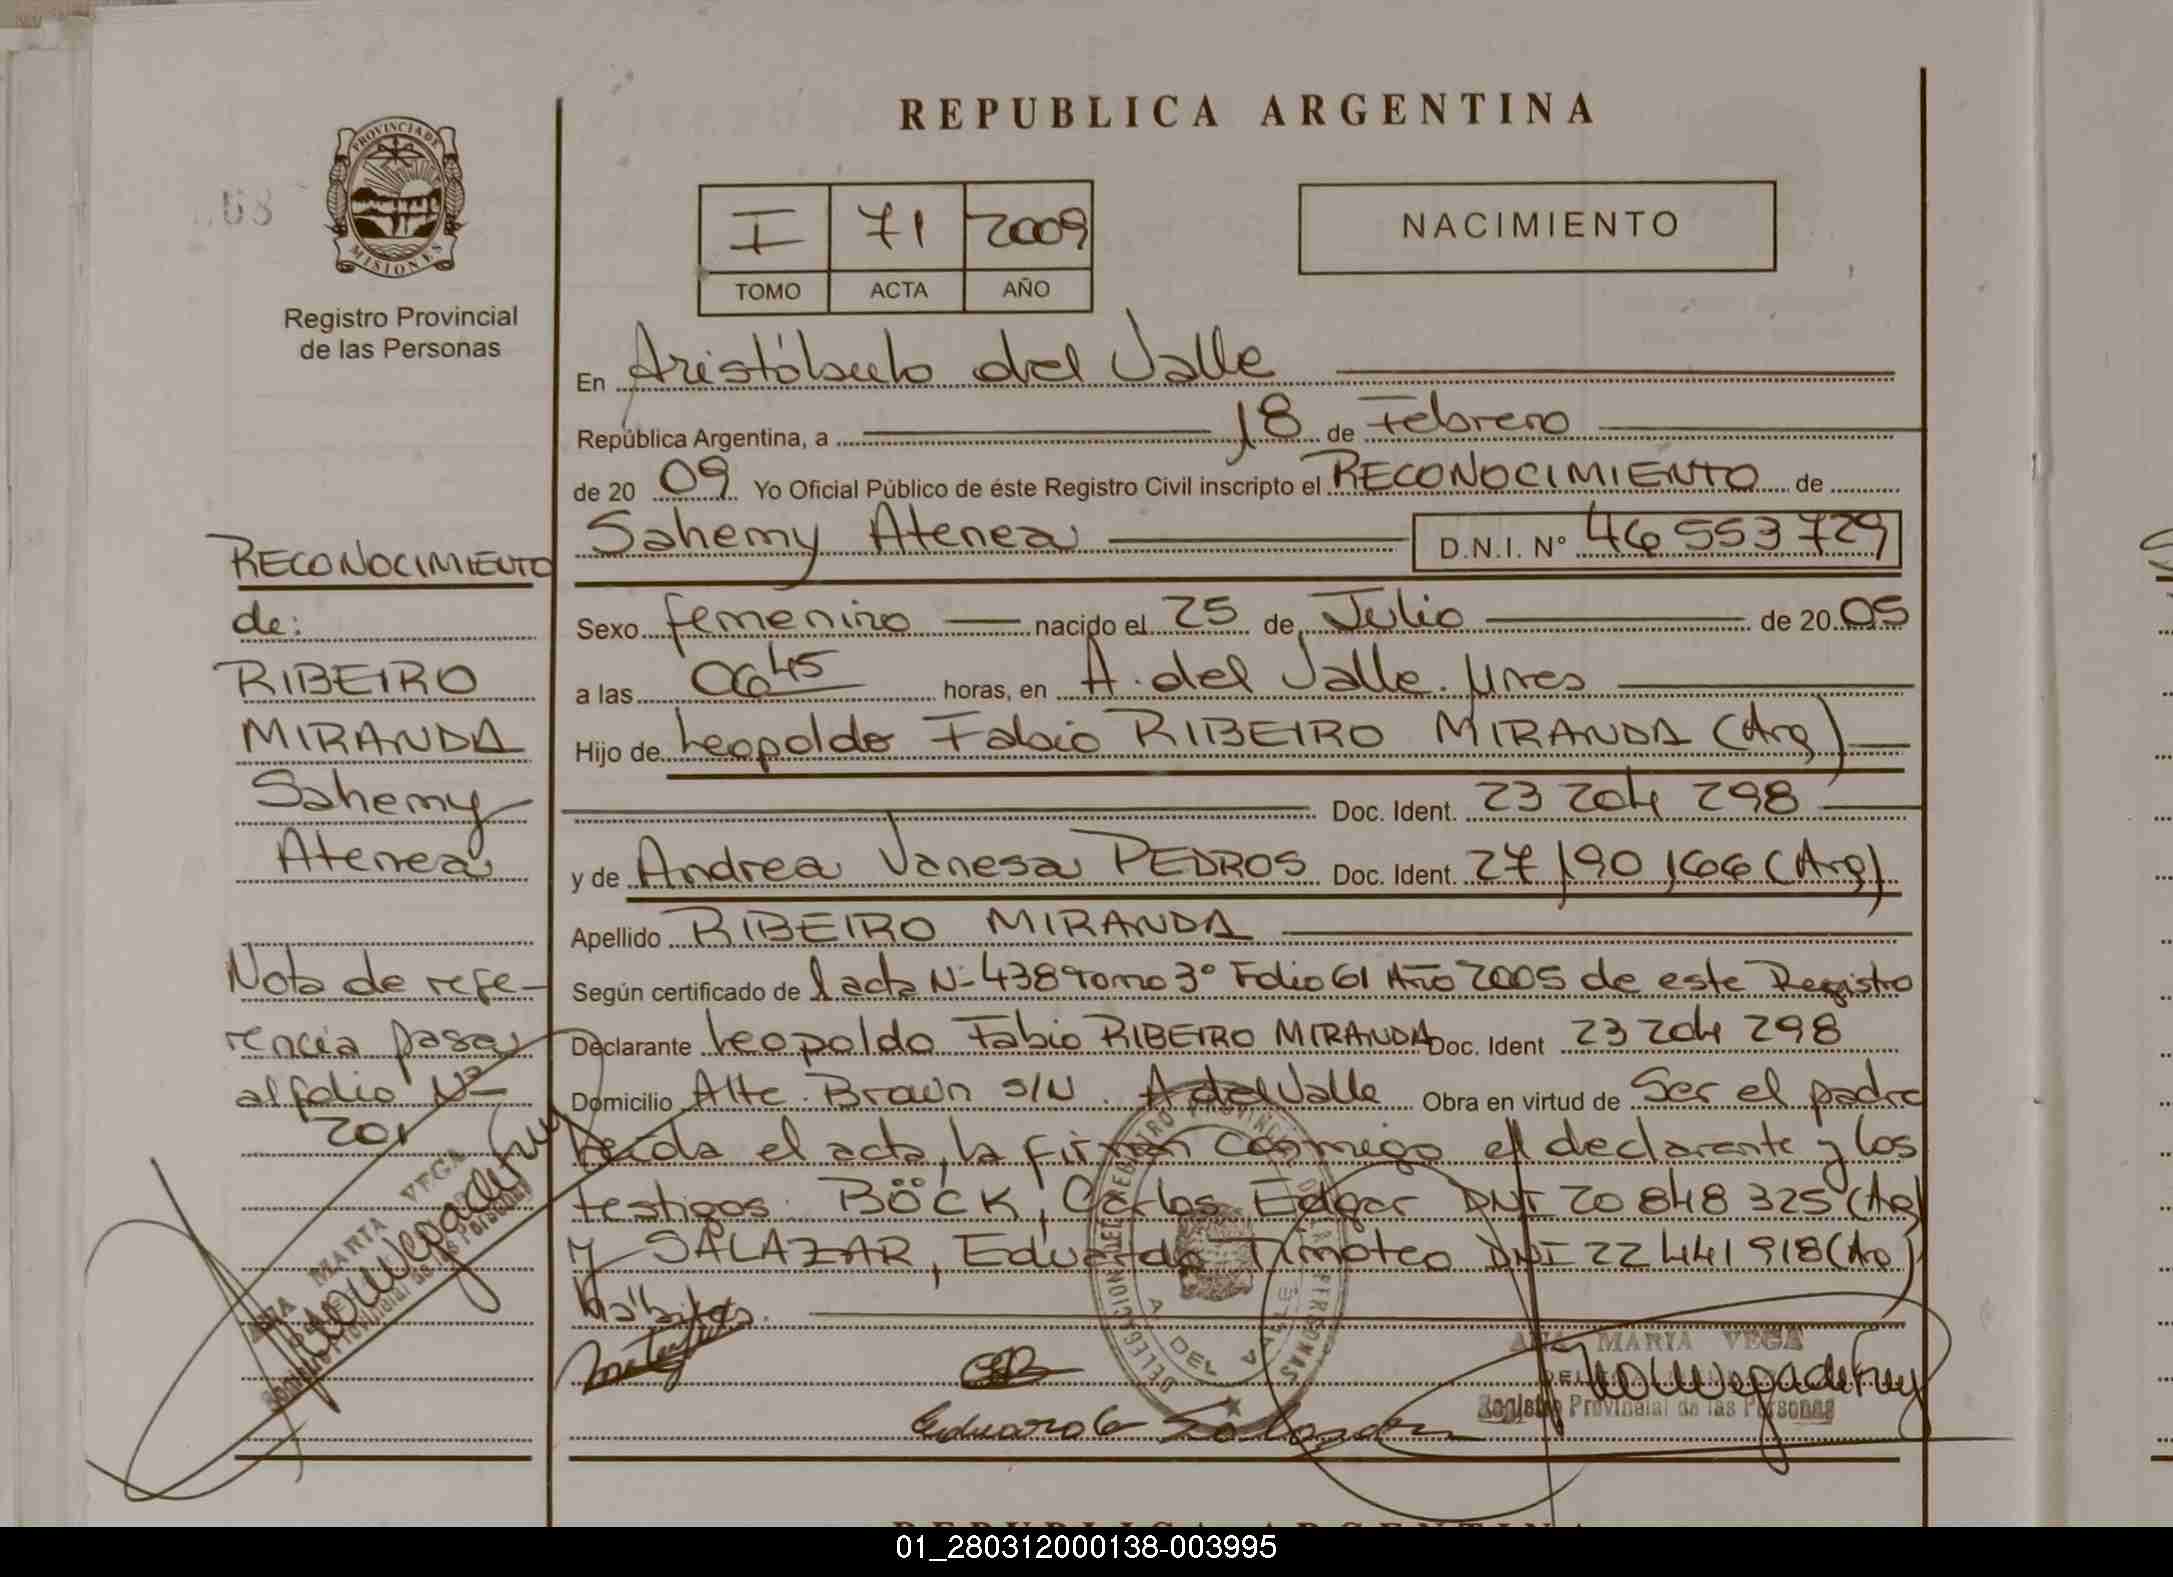 REPUBLICA ARGENTINA
PROVINCIA DE MISIONES
Registro Provincial
de las Personas
I 71 2009
TOMO ACTA AÑO
NACIMIENTO
En Aristóbulo del Valle
República Argentina, a 18 de Febrero
de 20 09 Yo Oficial Público de éste Registro Civil inscripto el RECONOCIMIENTO de
Sahemy Atenea D.N.I. Nº 46 553 729
Sexo femenino nacido el 25 de Julio de 20 05
a las 06 45 horas, en A. del Valle. Mnes
Hijo de Leopoldo Fabio RIBEIRO MIRANDA (Arg)
Doc. Ident. 23 204 298
y de Andrea Vanesa PEDROS Doc. Ident. 27 190 166 (Arg)
Apellido RIBEIRO MIRANDA
Según certificado de l acta Nº 438 Tomo 3º Folio 61 Año 2005 de este Registro
Declarante Leopoldo Fabio RIBEIRO MIRANDA Doc. Ident 23 204 298
Domicilio Alte. Brown S/N. A del Valle Obra en virtud de Ser el padre
Leida el acta, la firman conmigo el declarante y los
testigos. BÖCK, Carlos Edgar DNI 20 848 325 (Ar)
y SALAZAR, Eduardo Timoteo DNI 22 441 918 (Ar)
hábiles.
RECONOCIMIENTO
de:
RIBEIRO
MIRANDA
Sahemy
Atenea
Nota de refe-
rencia pasa
al folio Nº
201
ANA MARIA VEGA
Registro Provincial de las Personas
Eduardo Salazar
ANA MARIA VEGA
Registro Provincial de las Personas
A. DEL VALLE
REPUBLICA ARGENTINA
01_280312000138-003995